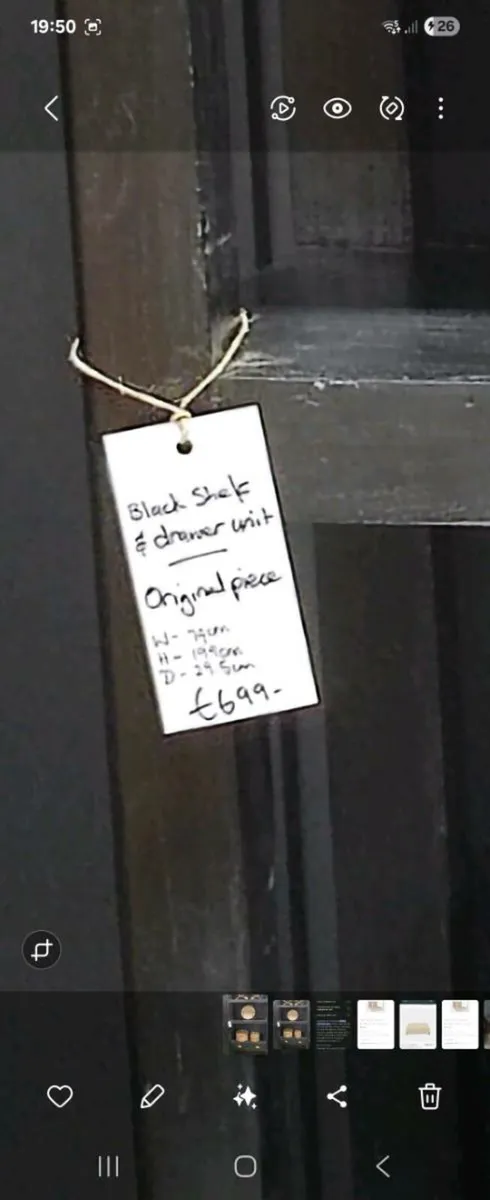 19:50
26
Black Shelf
& drawer unit
Original piece
W- 79cm
H- 199cm
D- 29.5cm
£699-